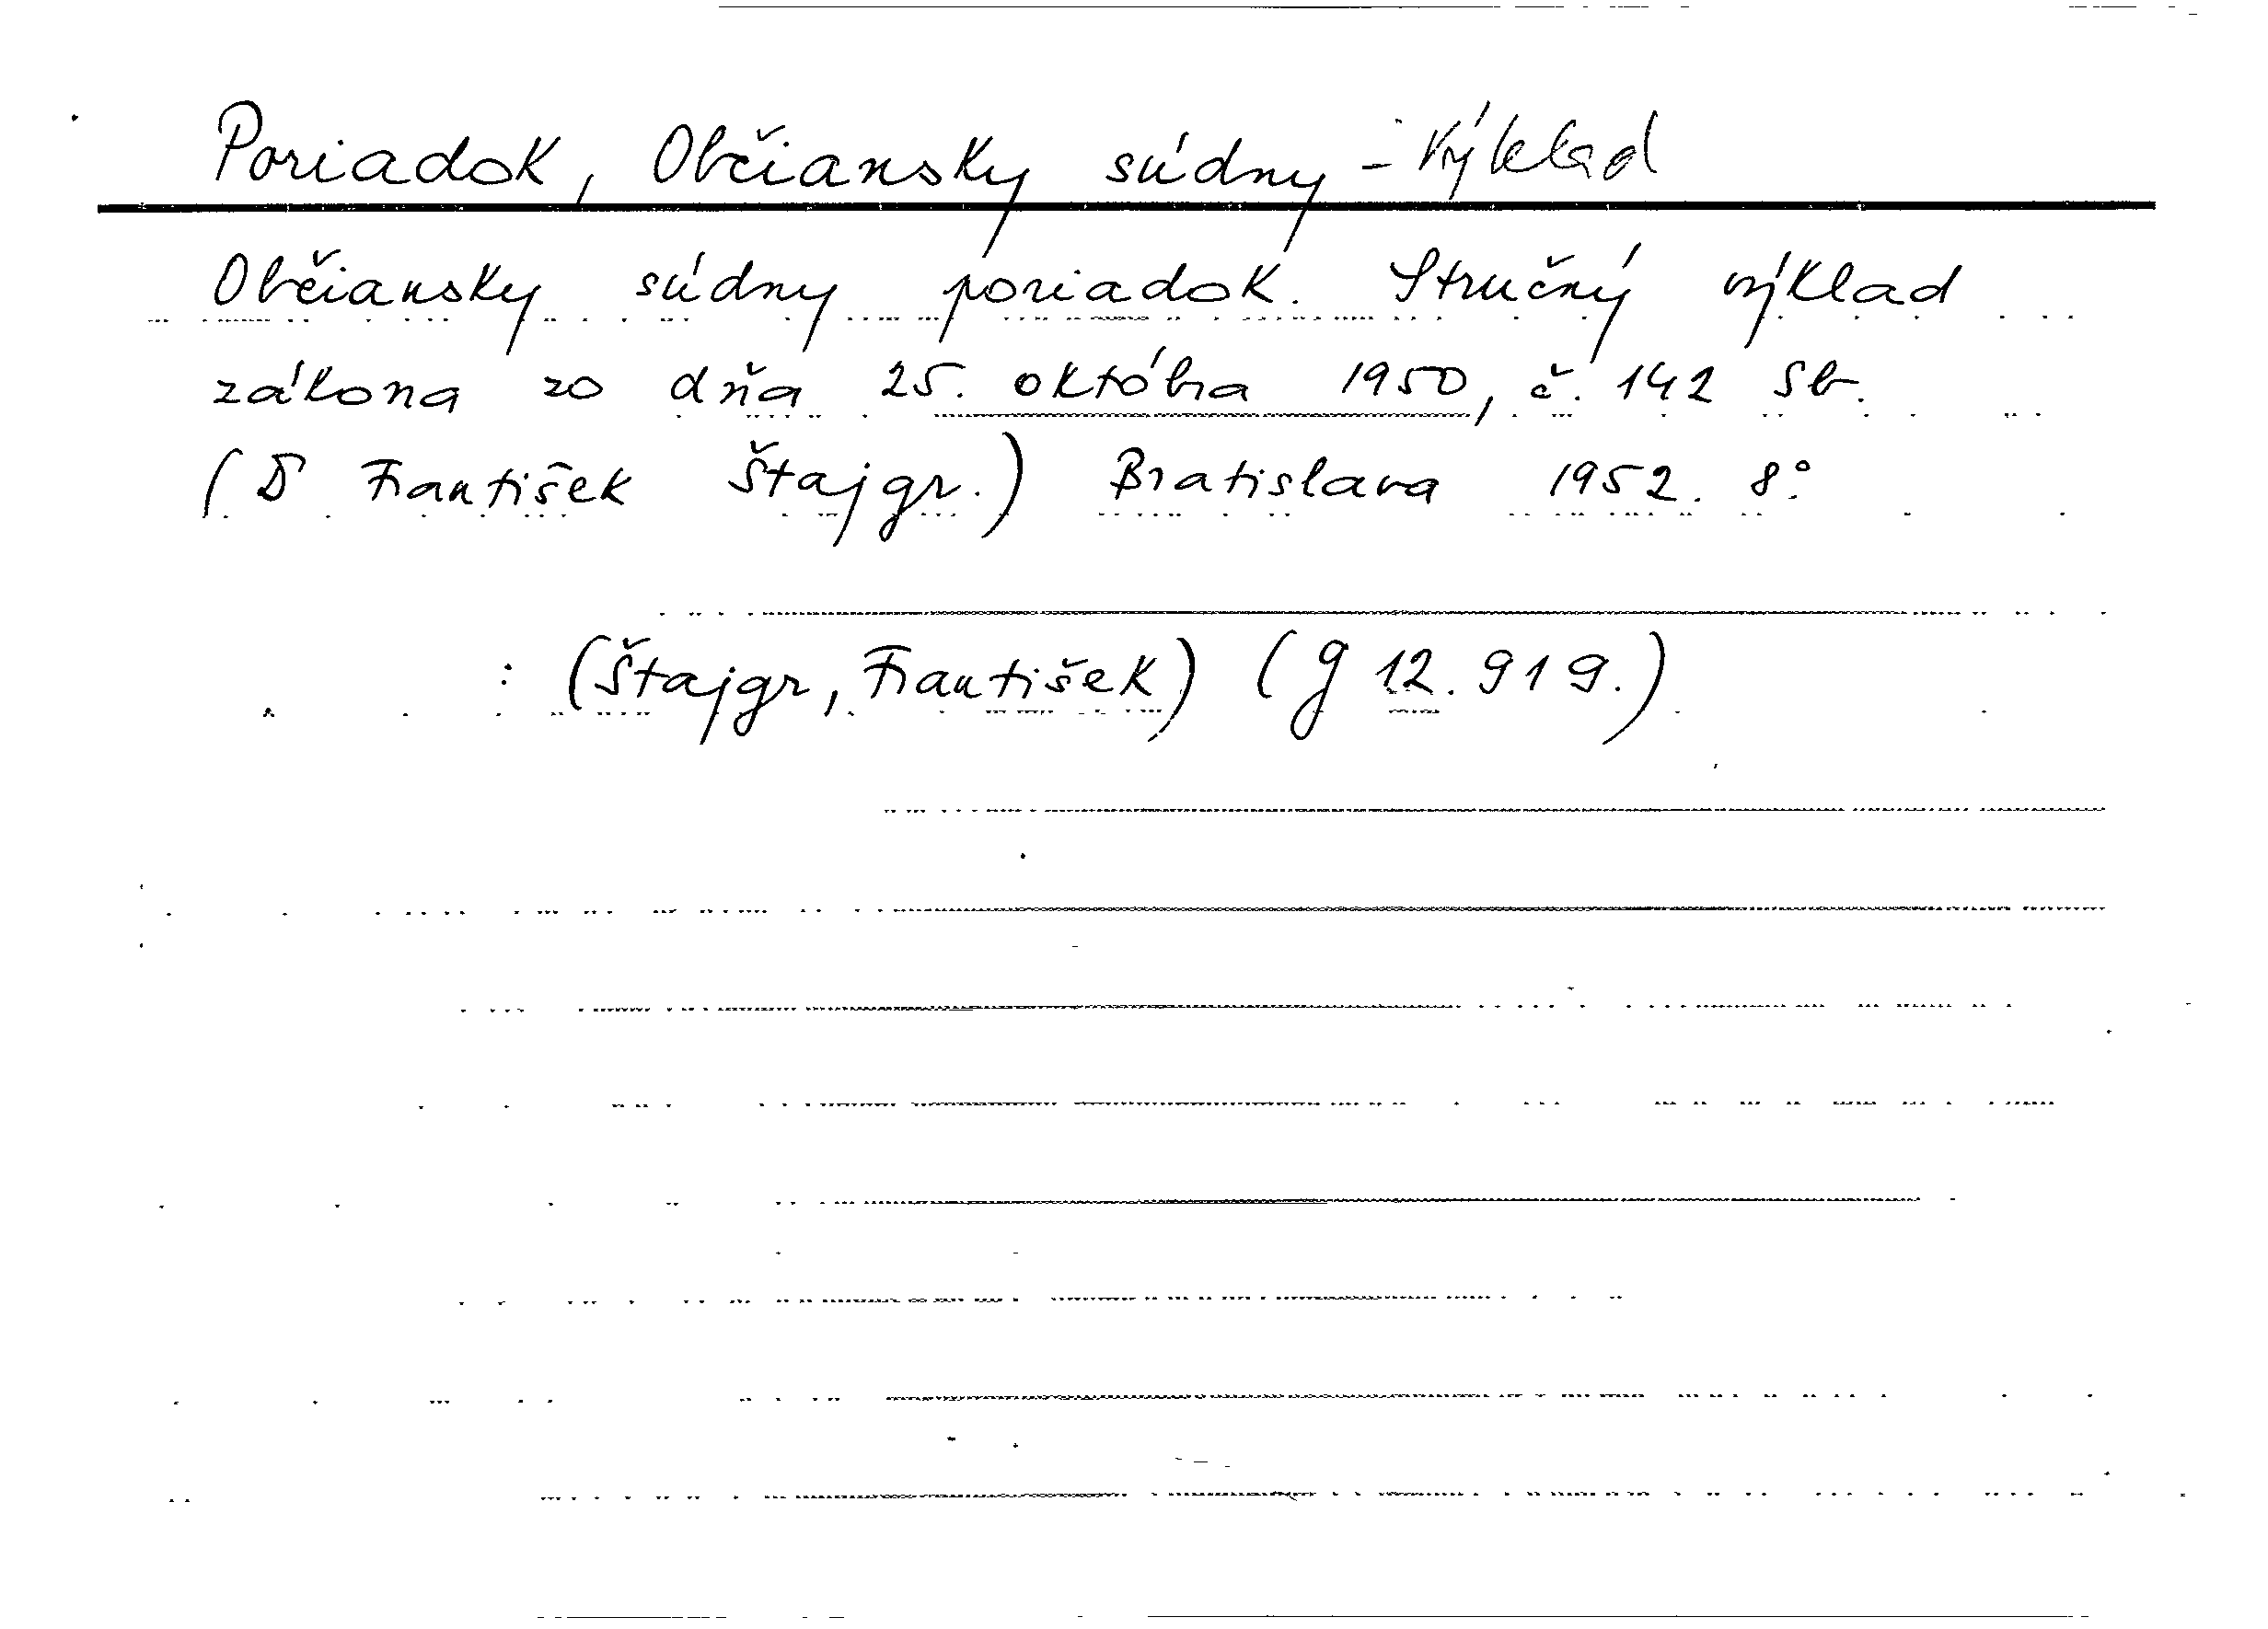 Poriadok, Občiansky súdny - Výklad
Občiansky súdny poriadok. Stručný výklad
zákona zo dňa 25. októbra 1950, č. 142 Sb.
( František Štajgr.) Bratislava 1952. 8°.
: (Štajgr, František) (g 12.919.)